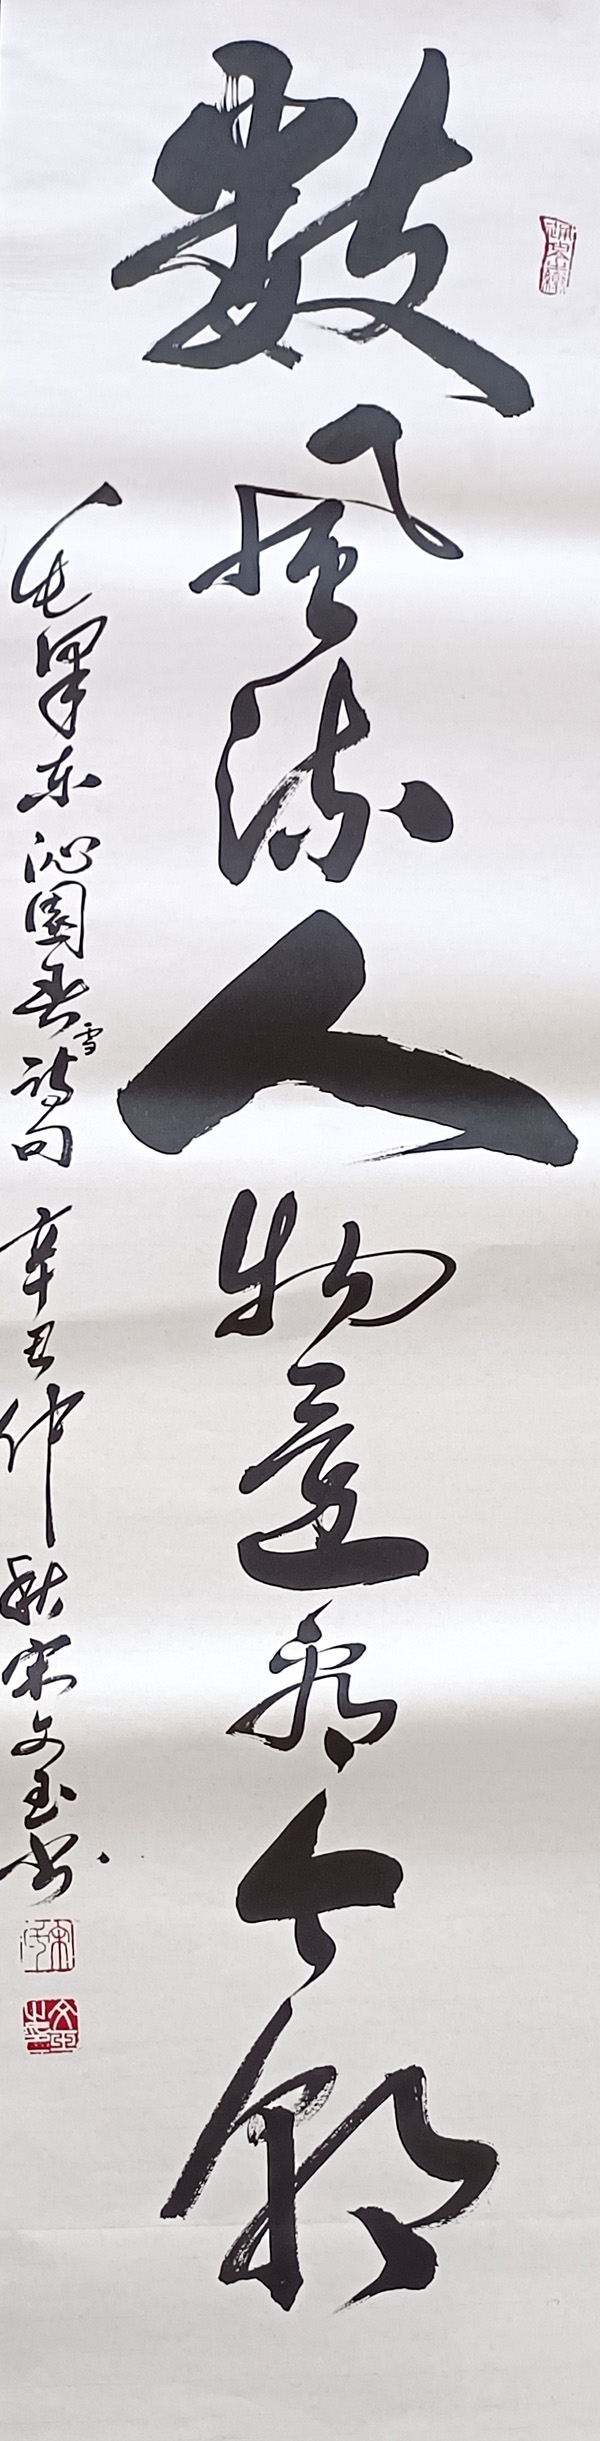 数风流人物还看今朝
毛泽东沁园春雪诗句 辛丑仲秋宋文玉书